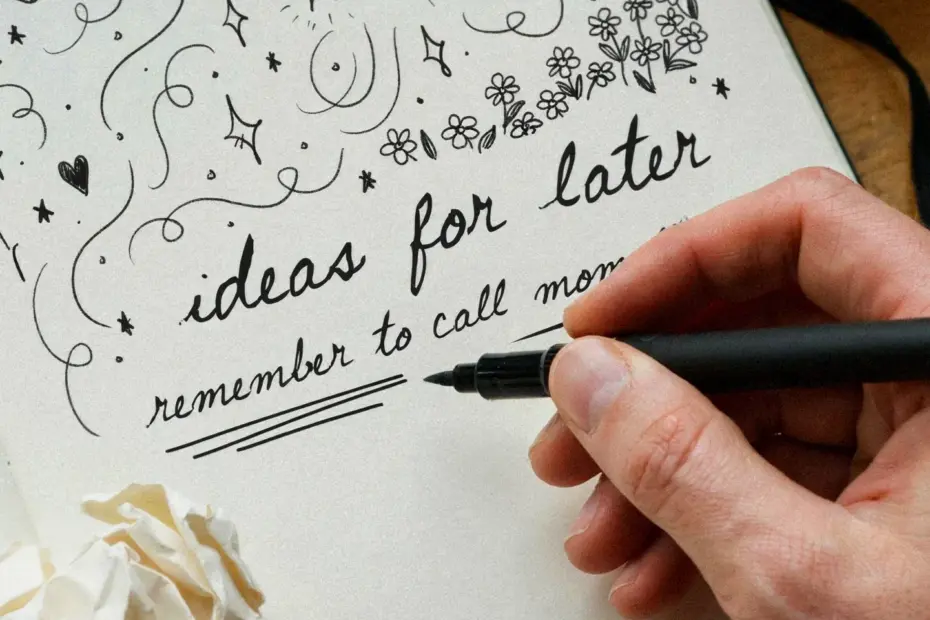 ideas for later
remember to call mom